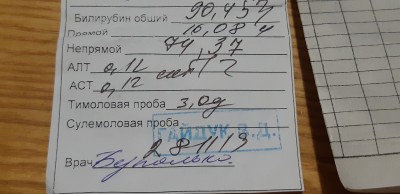 Билирубин общий 90,457
Прямой 16,084
Непрямой 74,37
АЛТ 0,12
АСТ 0,12
Тимоловая проба 3,0д
Сулемоловая проба
ГАЙДУК В.Д.
281113
Врач